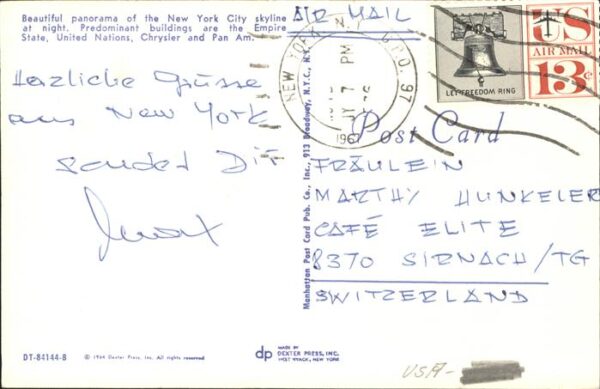 Beautiful panorama of the New York City skyline
at night. Predominant buildings are the Empire
State, United Nations, Chrysler and Pan Am.
AIR MAIL
NEW YORK, N.Y.
G.P.O. 97
PM
JY 7
196
LET FREEDOM RING
US
AIR MAIL
13¢
Post Card
Herzliche Grüsse
aus New York
sendet Dir
FRÄULEIN
MARTHY HUNKELER
CAFÉ ELITE
8370 SIRNACH/TG
SWITZERLAND
Manhattan Post Card Pub. Co., Inc., 913 Broadway, N.Y.C., N.Y.
DT-84144-B
© 1964 Dexter Press, Inc. All rights reserved
dp
MADE BY
DEXTER PRESS, INC.
WEST NYACK, NEW YORK
USA-